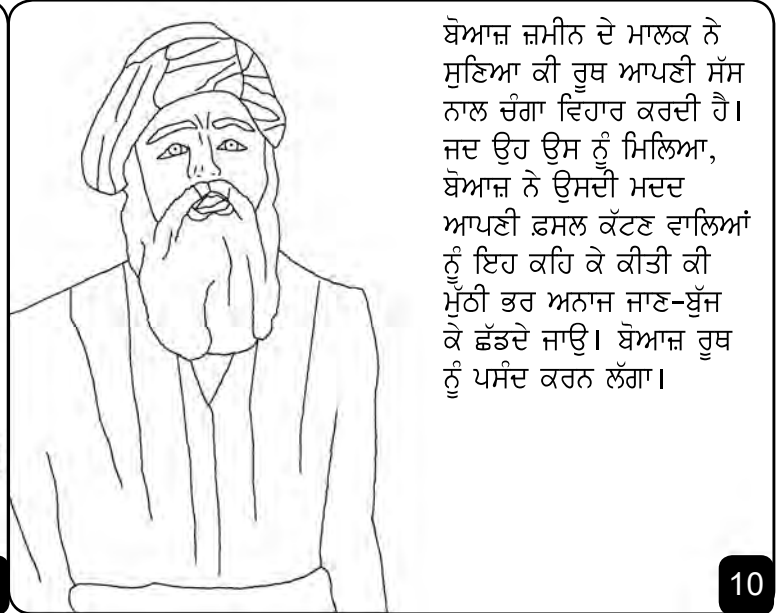 ਬੋਆਜ਼ ਜ਼ਮੀਨ ਦੇ ਮਾਲਕ ਨੇ
ਸੁਣਿਆ ਕੀ ਰੂਥ ਆਪਣੀ ਸੱਸ
ਨਾਲ ਚੰਗਾ ਵਿਹਾਰ ਕਰਦੀ ਹੈ।
ਜਦ ਉਹ ਉਸ ਨੂੰ ਮਿਲਿਆ,
ਬੋਆਜ਼ ਨੇ ਉਸਦੀ ਮਦਦ
ਆਪਣੀ ਫ਼ਸਲ ਕੱਟਣ ਵਾਲਿਆਂ
ਨੂੰ ਇਹ ਕਹਿ ਕੇ ਕੀਤੀ ਕੀ
ਮੁੱਠੀ ਭਰ ਅਨਾਜ ਜਾਣ-ਬੁੱਜ
ਕੇ ਛੱਡਦੇ ਜਾਉ। ਬੋਆਜ਼ ਰੂਥ
ਨੂੰ ਪਸੰਦ ਕਰਨ ਲੱਗਾ।
10